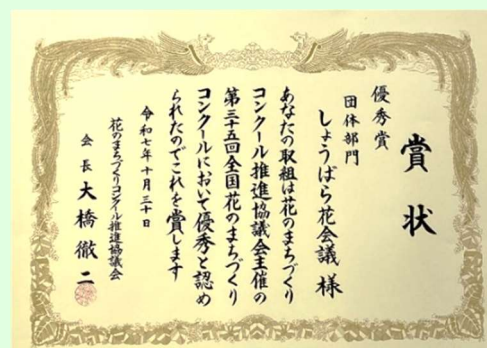 賞状
優秀賞
団体部門
しょうばら花会議 様
あなたの取組は花のまちづくり
コンクール推進協議会主催の
第三十五回全国花のまちづくり
コンクールにおいて優秀と認め
られたのでこれを賞します
令和七年十月三十日
花のまちづくりコンクール推進協議会
会長 大橋徹二